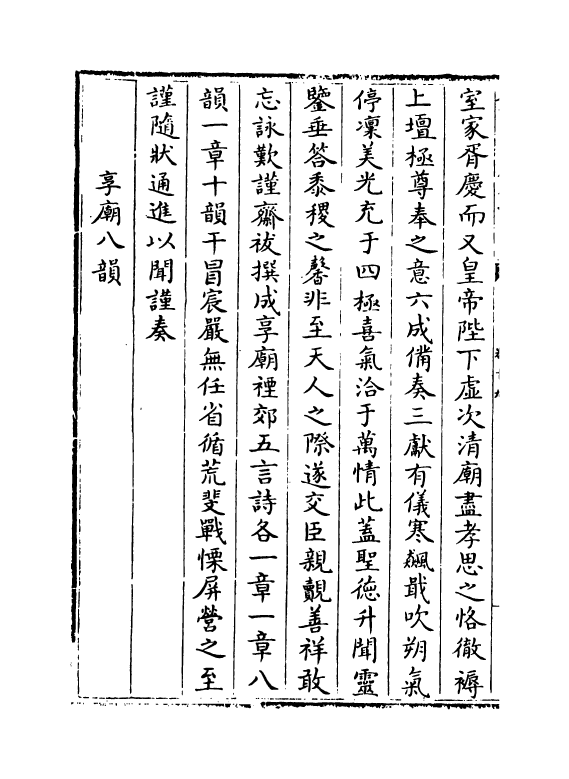 室家胥慶而又皇帝陛下虛次清廟盡孝思之恪徹褥
上壇極尊奉之意六成備奏三獻有儀寒飊戢吹朔氣
停凜美光充于四極喜氣洽于萬情此蓋聖徳升聞靈
鑒垂答黍稷之馨非至天人之際遂交臣親覿善祥敢
忘詠歎謹齋祓撰成享廟禋郊五言詩各一章一章八
韻一章十韻干冒宸嚴無任省循荒斐戰慄屏營之至
謹隨狀通進以聞謹奏
享廟八韻